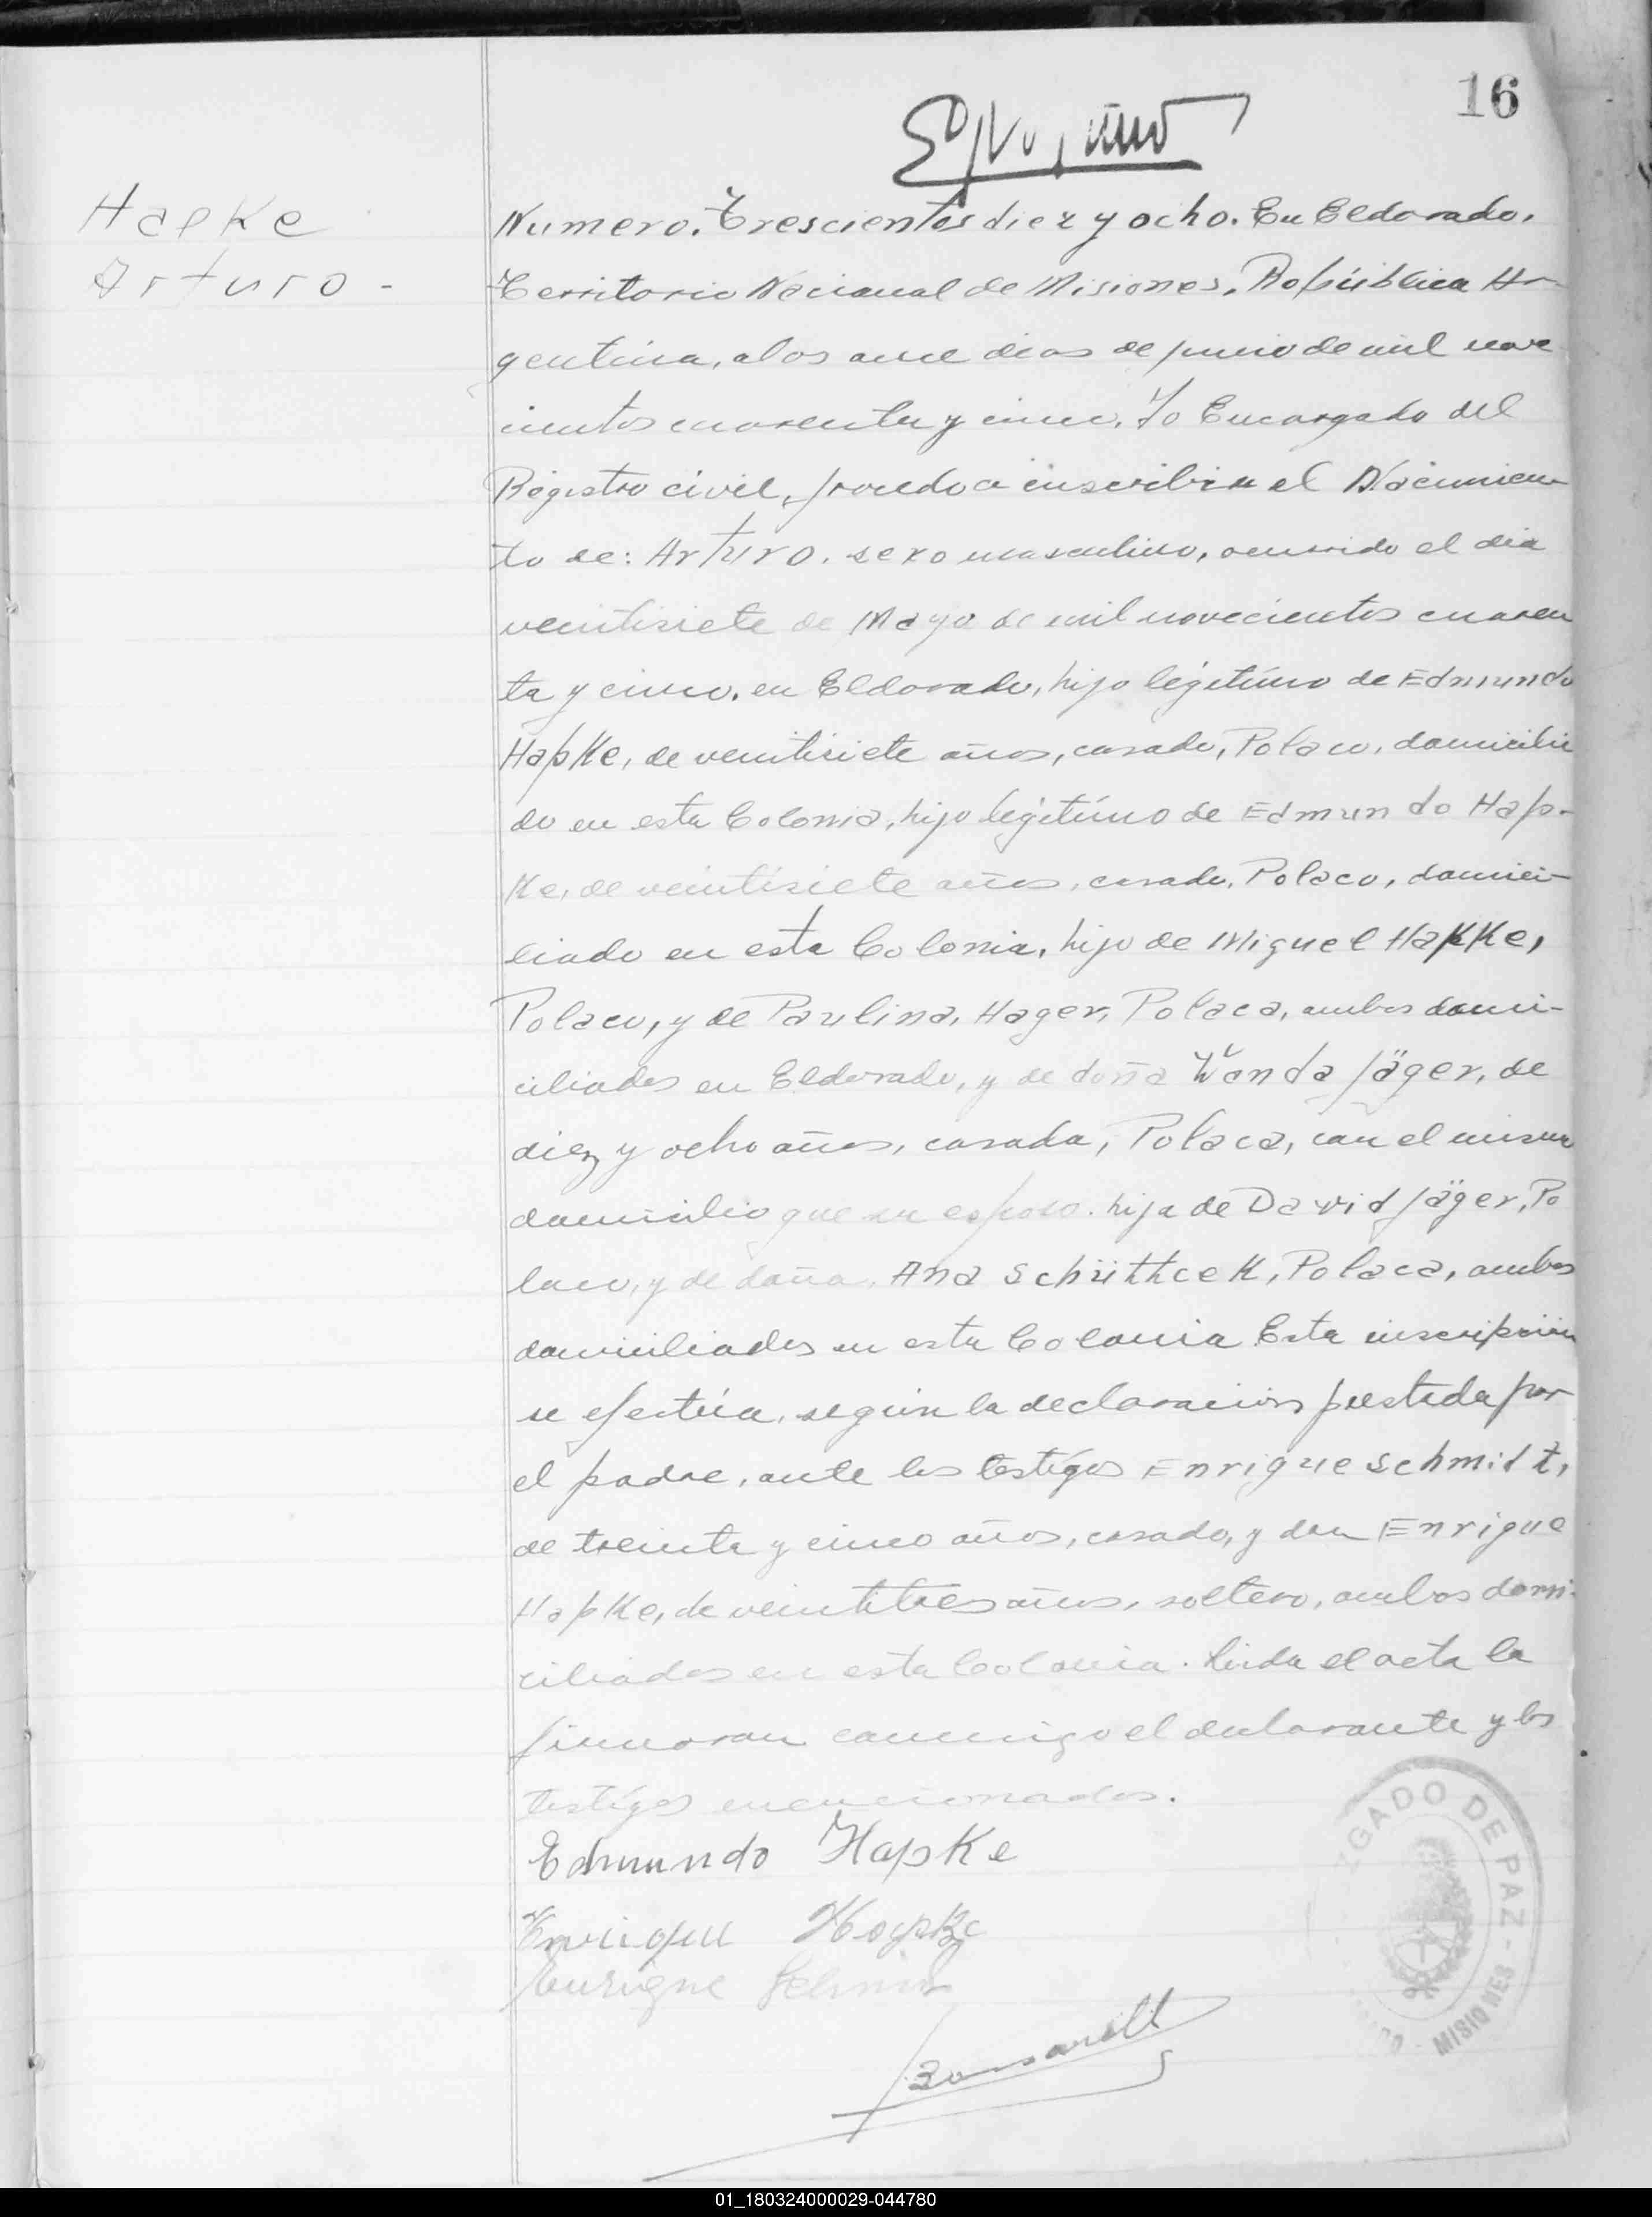 16
Hapke
Arturo -
Numero. Trescientos diez y ocho. En Eldorado,
Territorio Nacional de Misiones, República Ar-
gentina, a los once dias de junio de mil nove
cientos cuarenta y cinco. Yo Encargado del
Registro civil, procedo a inscribir el Nacimien-
to de: Arturo. sexo masculino, ocurrido el dia
veintisiete de Mayo de mil novecientos cuaren
ta y cinco. en Eldorado, hijo legítimo de Edmundo
Hapke, de veintisiete años, casado, Polaco, domicilia
do en esta Colonia, hijo legítimo de Edmundo Hap-
ke, de veintisiete años, casado, Polaco, domici-
liado en esta Colonia, hijo de Miguel Hapke,
Polaco, y de Paulina, Hager, Polaca, ambos domi-
ciliados en Eldorado, y de doña Wanda Jäger, de
diez y ocho años, casada, Polaca, con el mismo
domicilio que su esposo. hija de David Jäger, Po
laco, y de doña, Ana Schüttcek, Polaca, ambos
domiciliados en esta Colonia Esta inscripcion
se efectúa, según la declaracion prestada por
el padre, ante los testigos Enrique Schmidt,
de treinta y cinco años, casado, y don Enrique
Hapke, de veintitres años, soltero, ambos domi-
ciliados en esta Colonia. Leida el acta la
firmaran conmigo el declarante y los
testigos mencionados.
Edmundo Hapke
Enrique Hapke
Enrique Schmidt
ZGADO DE PAZ - MISIONES
01_180324000029-044780